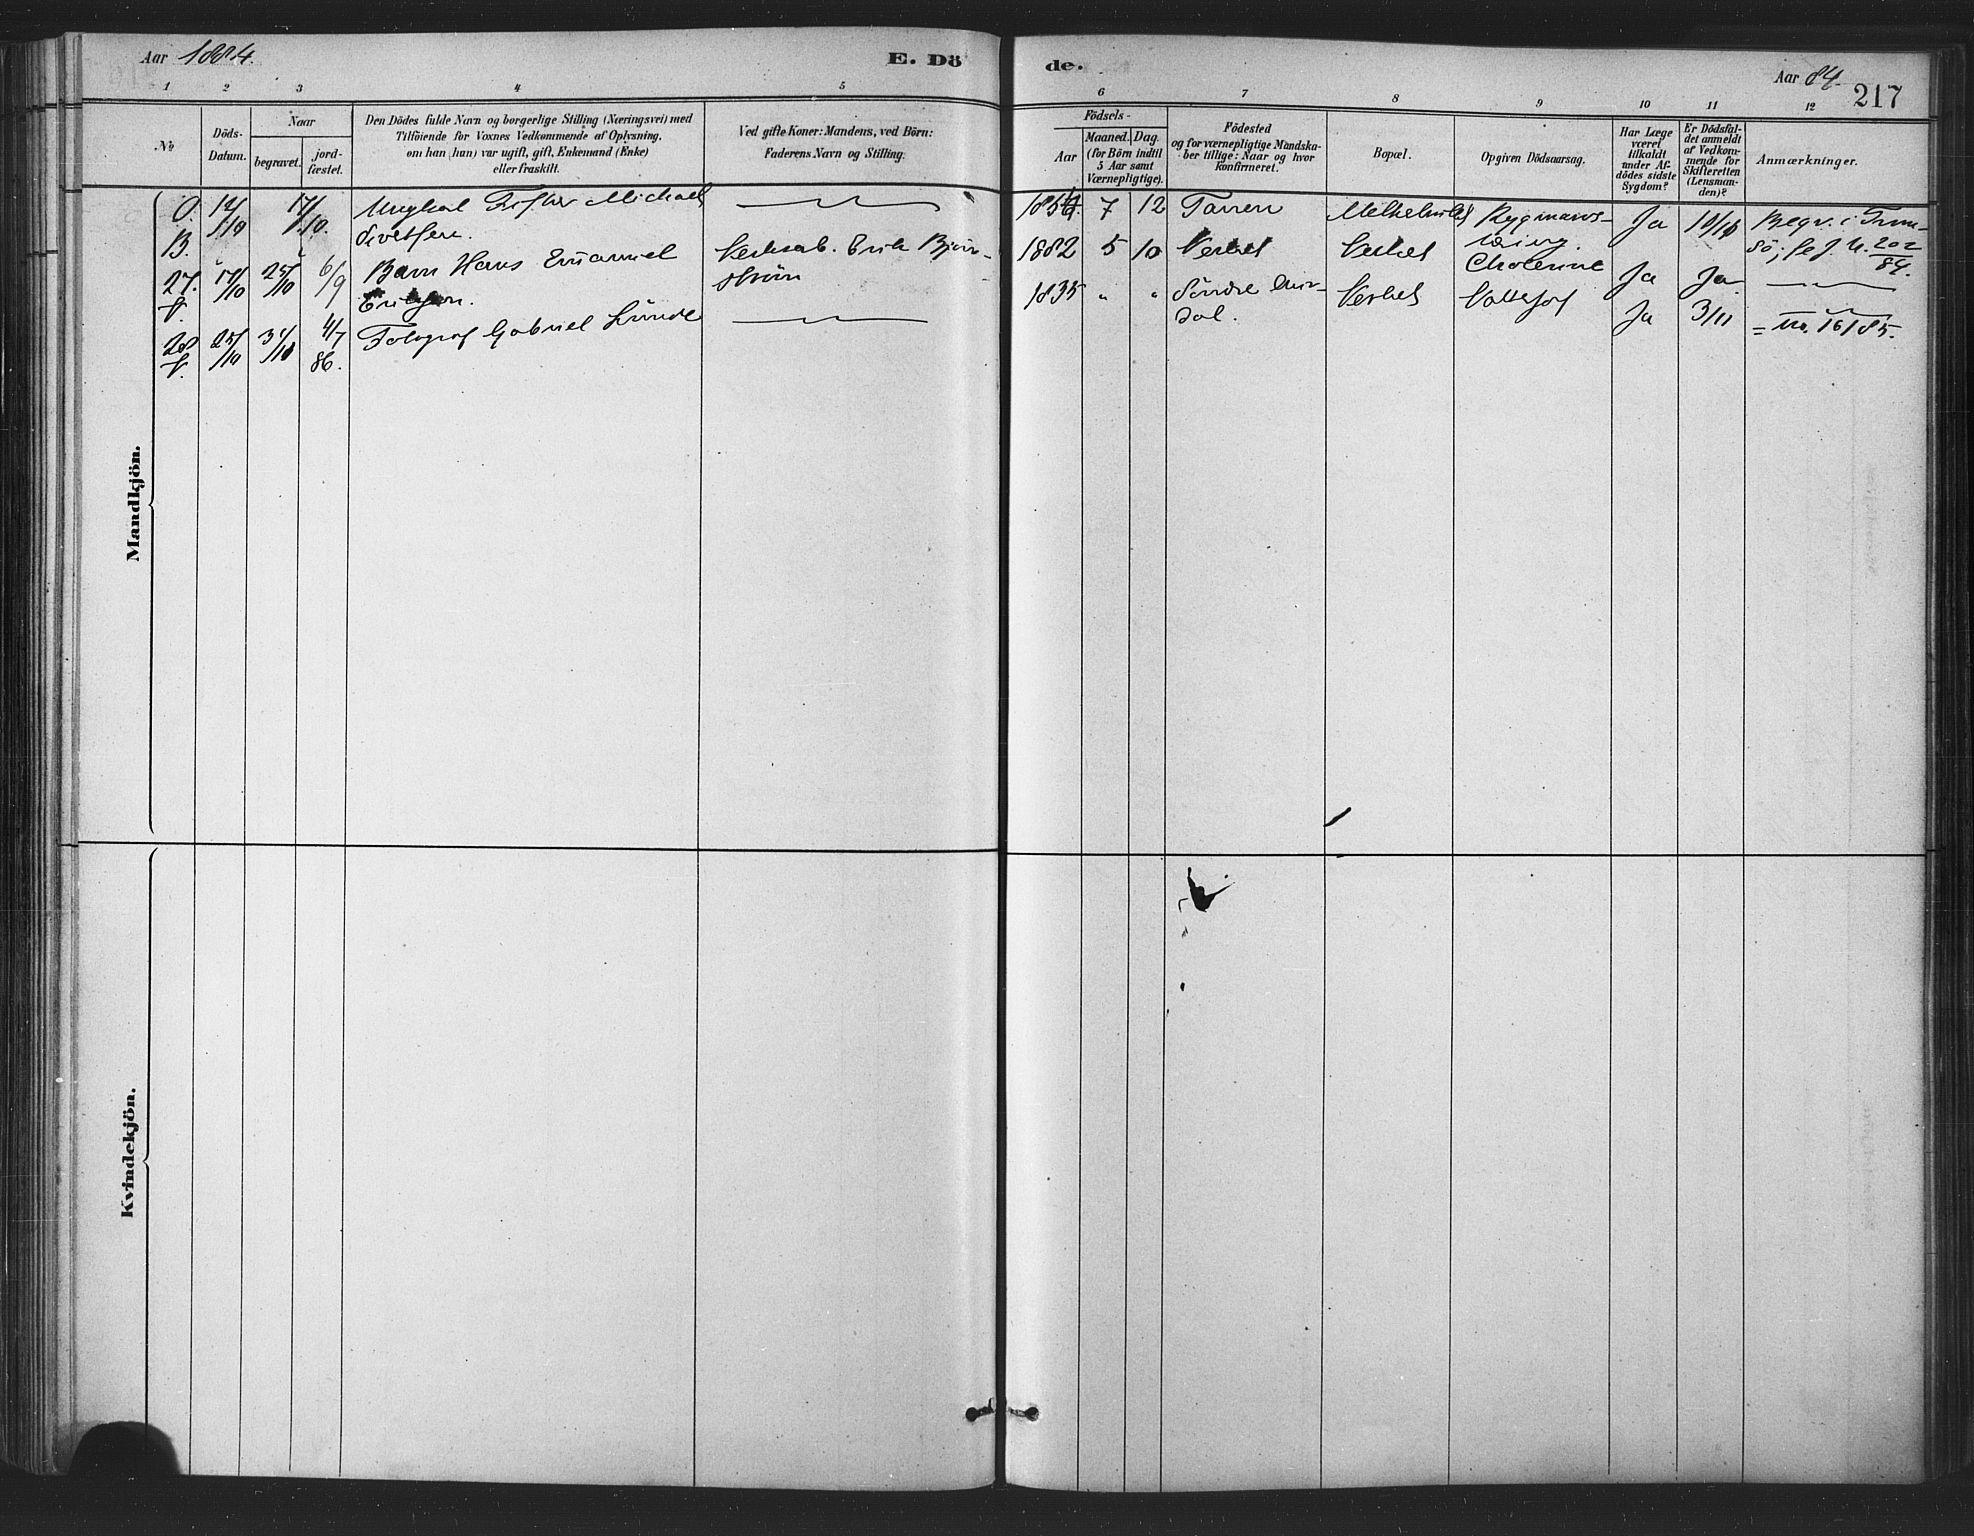 Aar 1884.
E. Dö
de.
Aar 84.
217
1 2 3 4 5 6 7 8 9 10 11 12
No
Döds-
Datum.
Naar
begravet.
jord-
fæstet.
Den Dödes fulde Navn og borgerlige Stilling (Næringsvei) med
Tilföiende for Voxnes Vedkommende af Oplysning,
om han (hun) var ugift, gift, Enkemand (Enke)
eller fraskilt.
Ved gifte Koner: Mandens, ved Börn:
Faderens Navn og Stilling.
Födsels-
Aar
Maaned. Dag.
(for Börn indtil
5 Aar samt
Værnepligtige).
Födested
og for værnepligtige Mandska-
ber tillige: Naar og hvor
konfirmeret.
Bopæl.
Opgiven Dödsaarsag.
Har Læge
været
tilkaldt
under Af-
dödes sidste
Sygdom?
Er Dödsfal-
det anmeldt
af Vedkom-
mende for
Skifteretten
(Lensman-
den)?
Anmærkninger.
Mandkjön.
0. 12/10 17/10. Ungkarl Michael
B. Sivertsen.
7 12 Ja Begr. i Trom-
sö; se J. N. 202/84.
27. 17/10 25/10 6/9 Barn Hans Emanuel
f. Ericson.
Verksarb. Erik Bjørn-
strøm
1882 5 10 Verket Verket Cholerine Ja Ja
28 25/10 31/10 4/7 Fotograf Gabriel Lunde
f. 86.
1835 " " Söndre
dal. Verket Ja 3/11 = No. 16/85.
Kvindekjön.